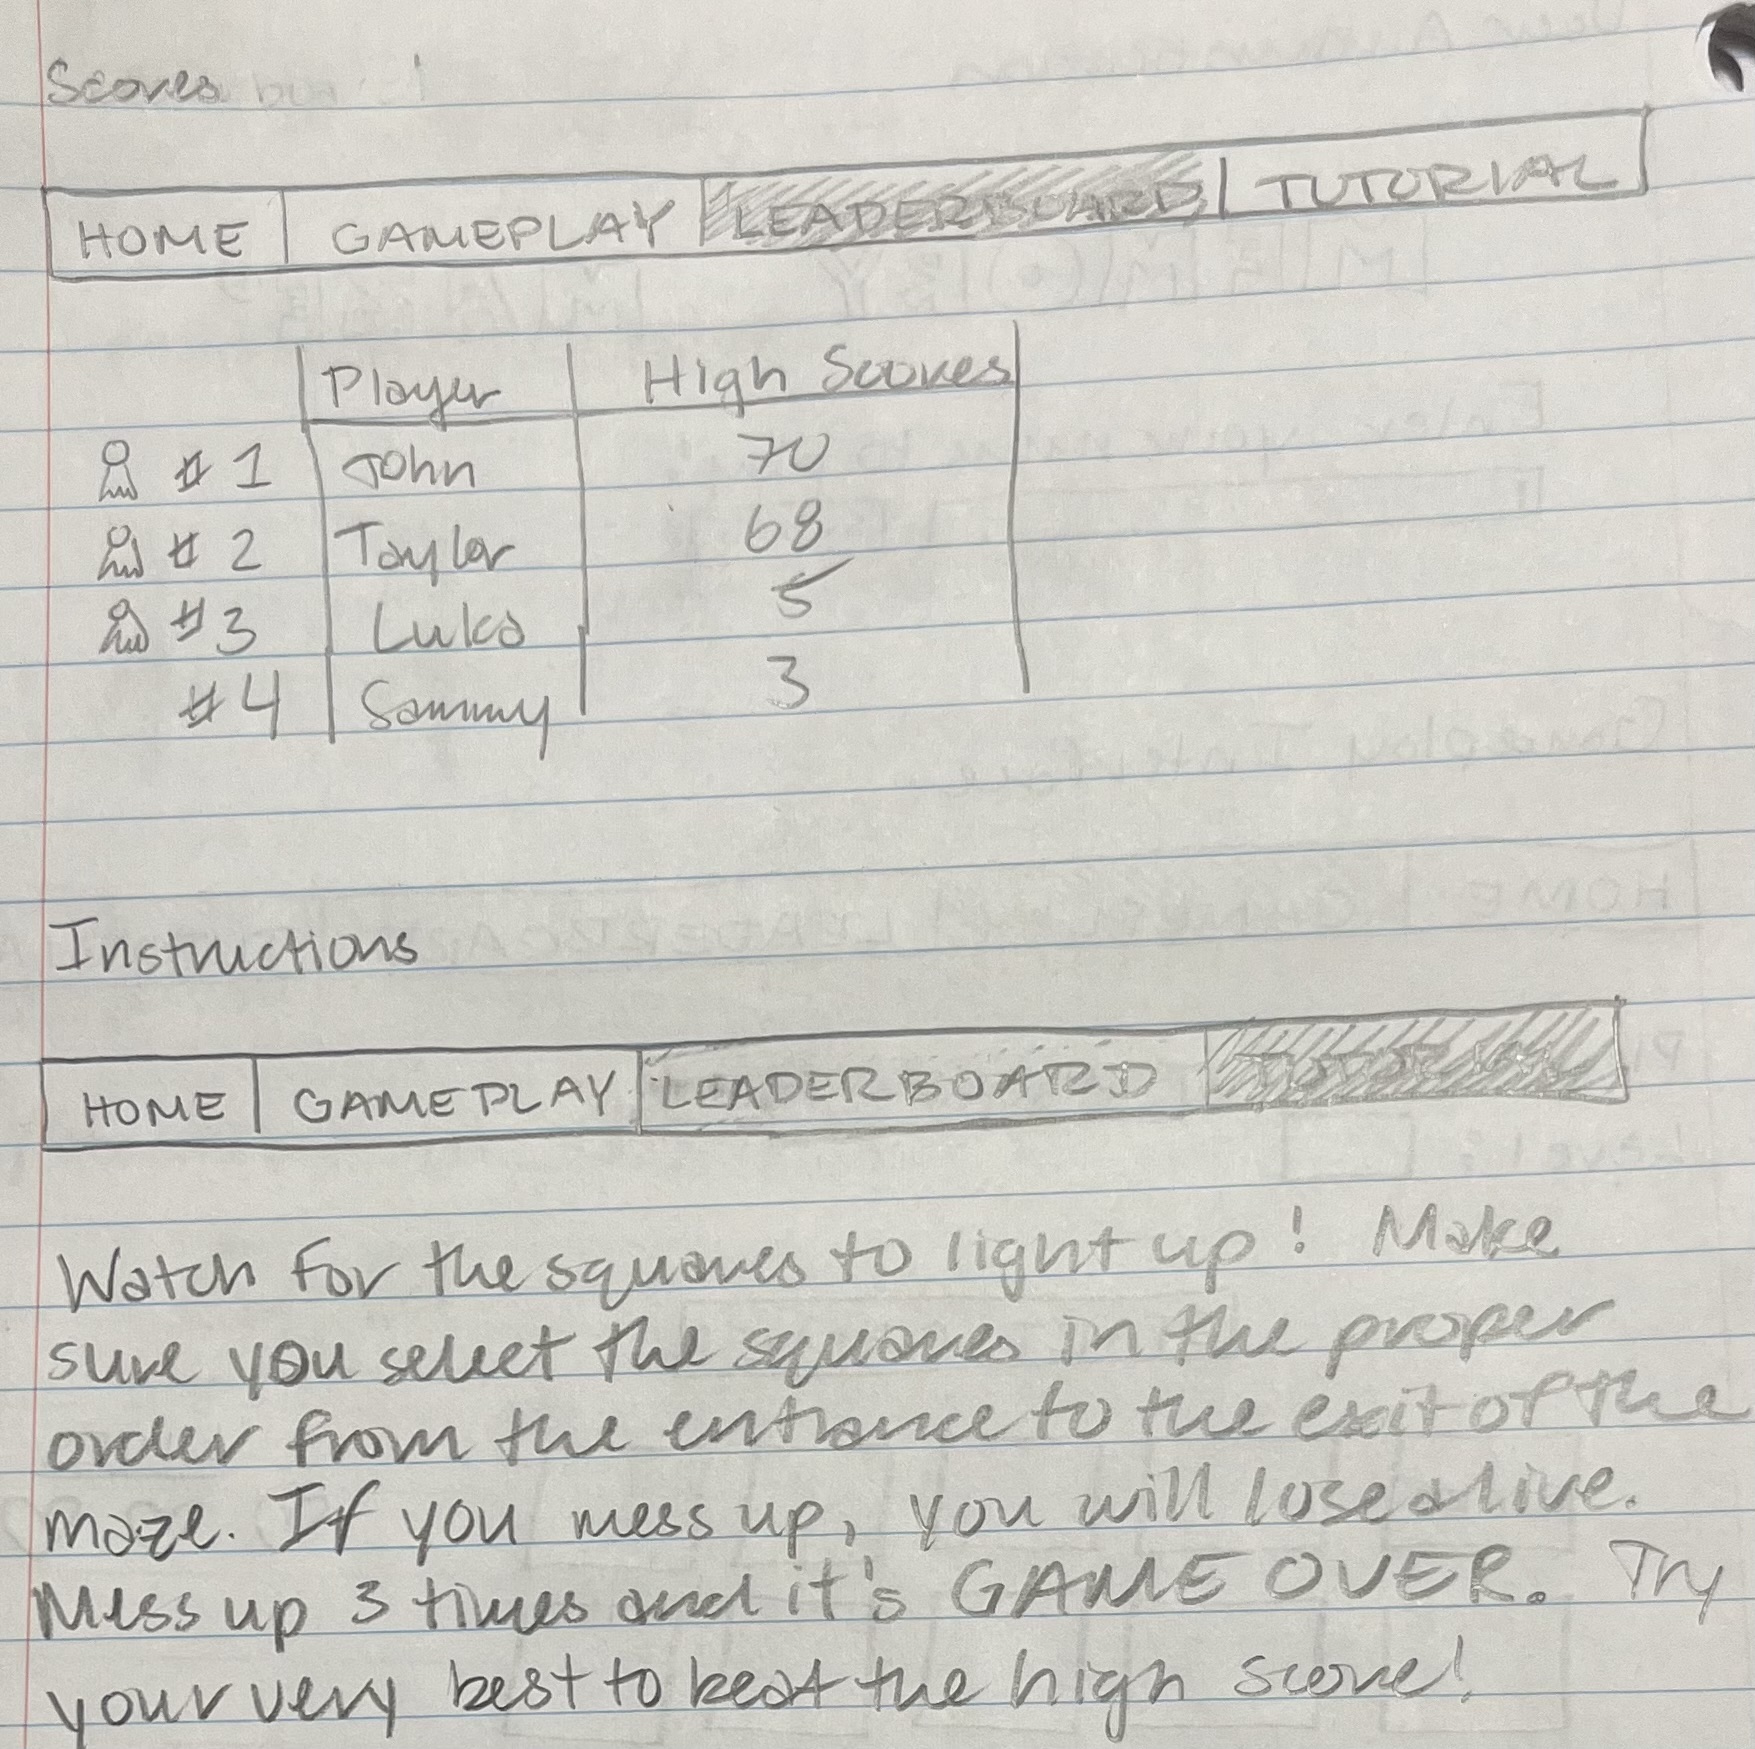 Scores
HOME GAMEPLAY LEADERBOARD TUTORIAL
Player High Scores
#1 John 70
#2 Taylor 68
#3 Luka 5
#4 Sammy 3
Instructions
HOME GAMEPLAY LEADERBOARD TUTORIAL
Watch for the squares to light up! Make
sure you select the squares in the proper
order from the entrance to the exit of the
maze. If you mess up, you will lose a live.
Mess up 3 times and it's GAME OVER. Try
your very best to beat the high score!